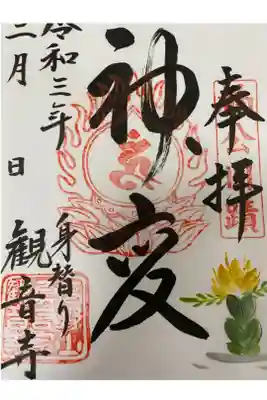 奉拝
神変
令和三年
三月　日
身替り
観音寺